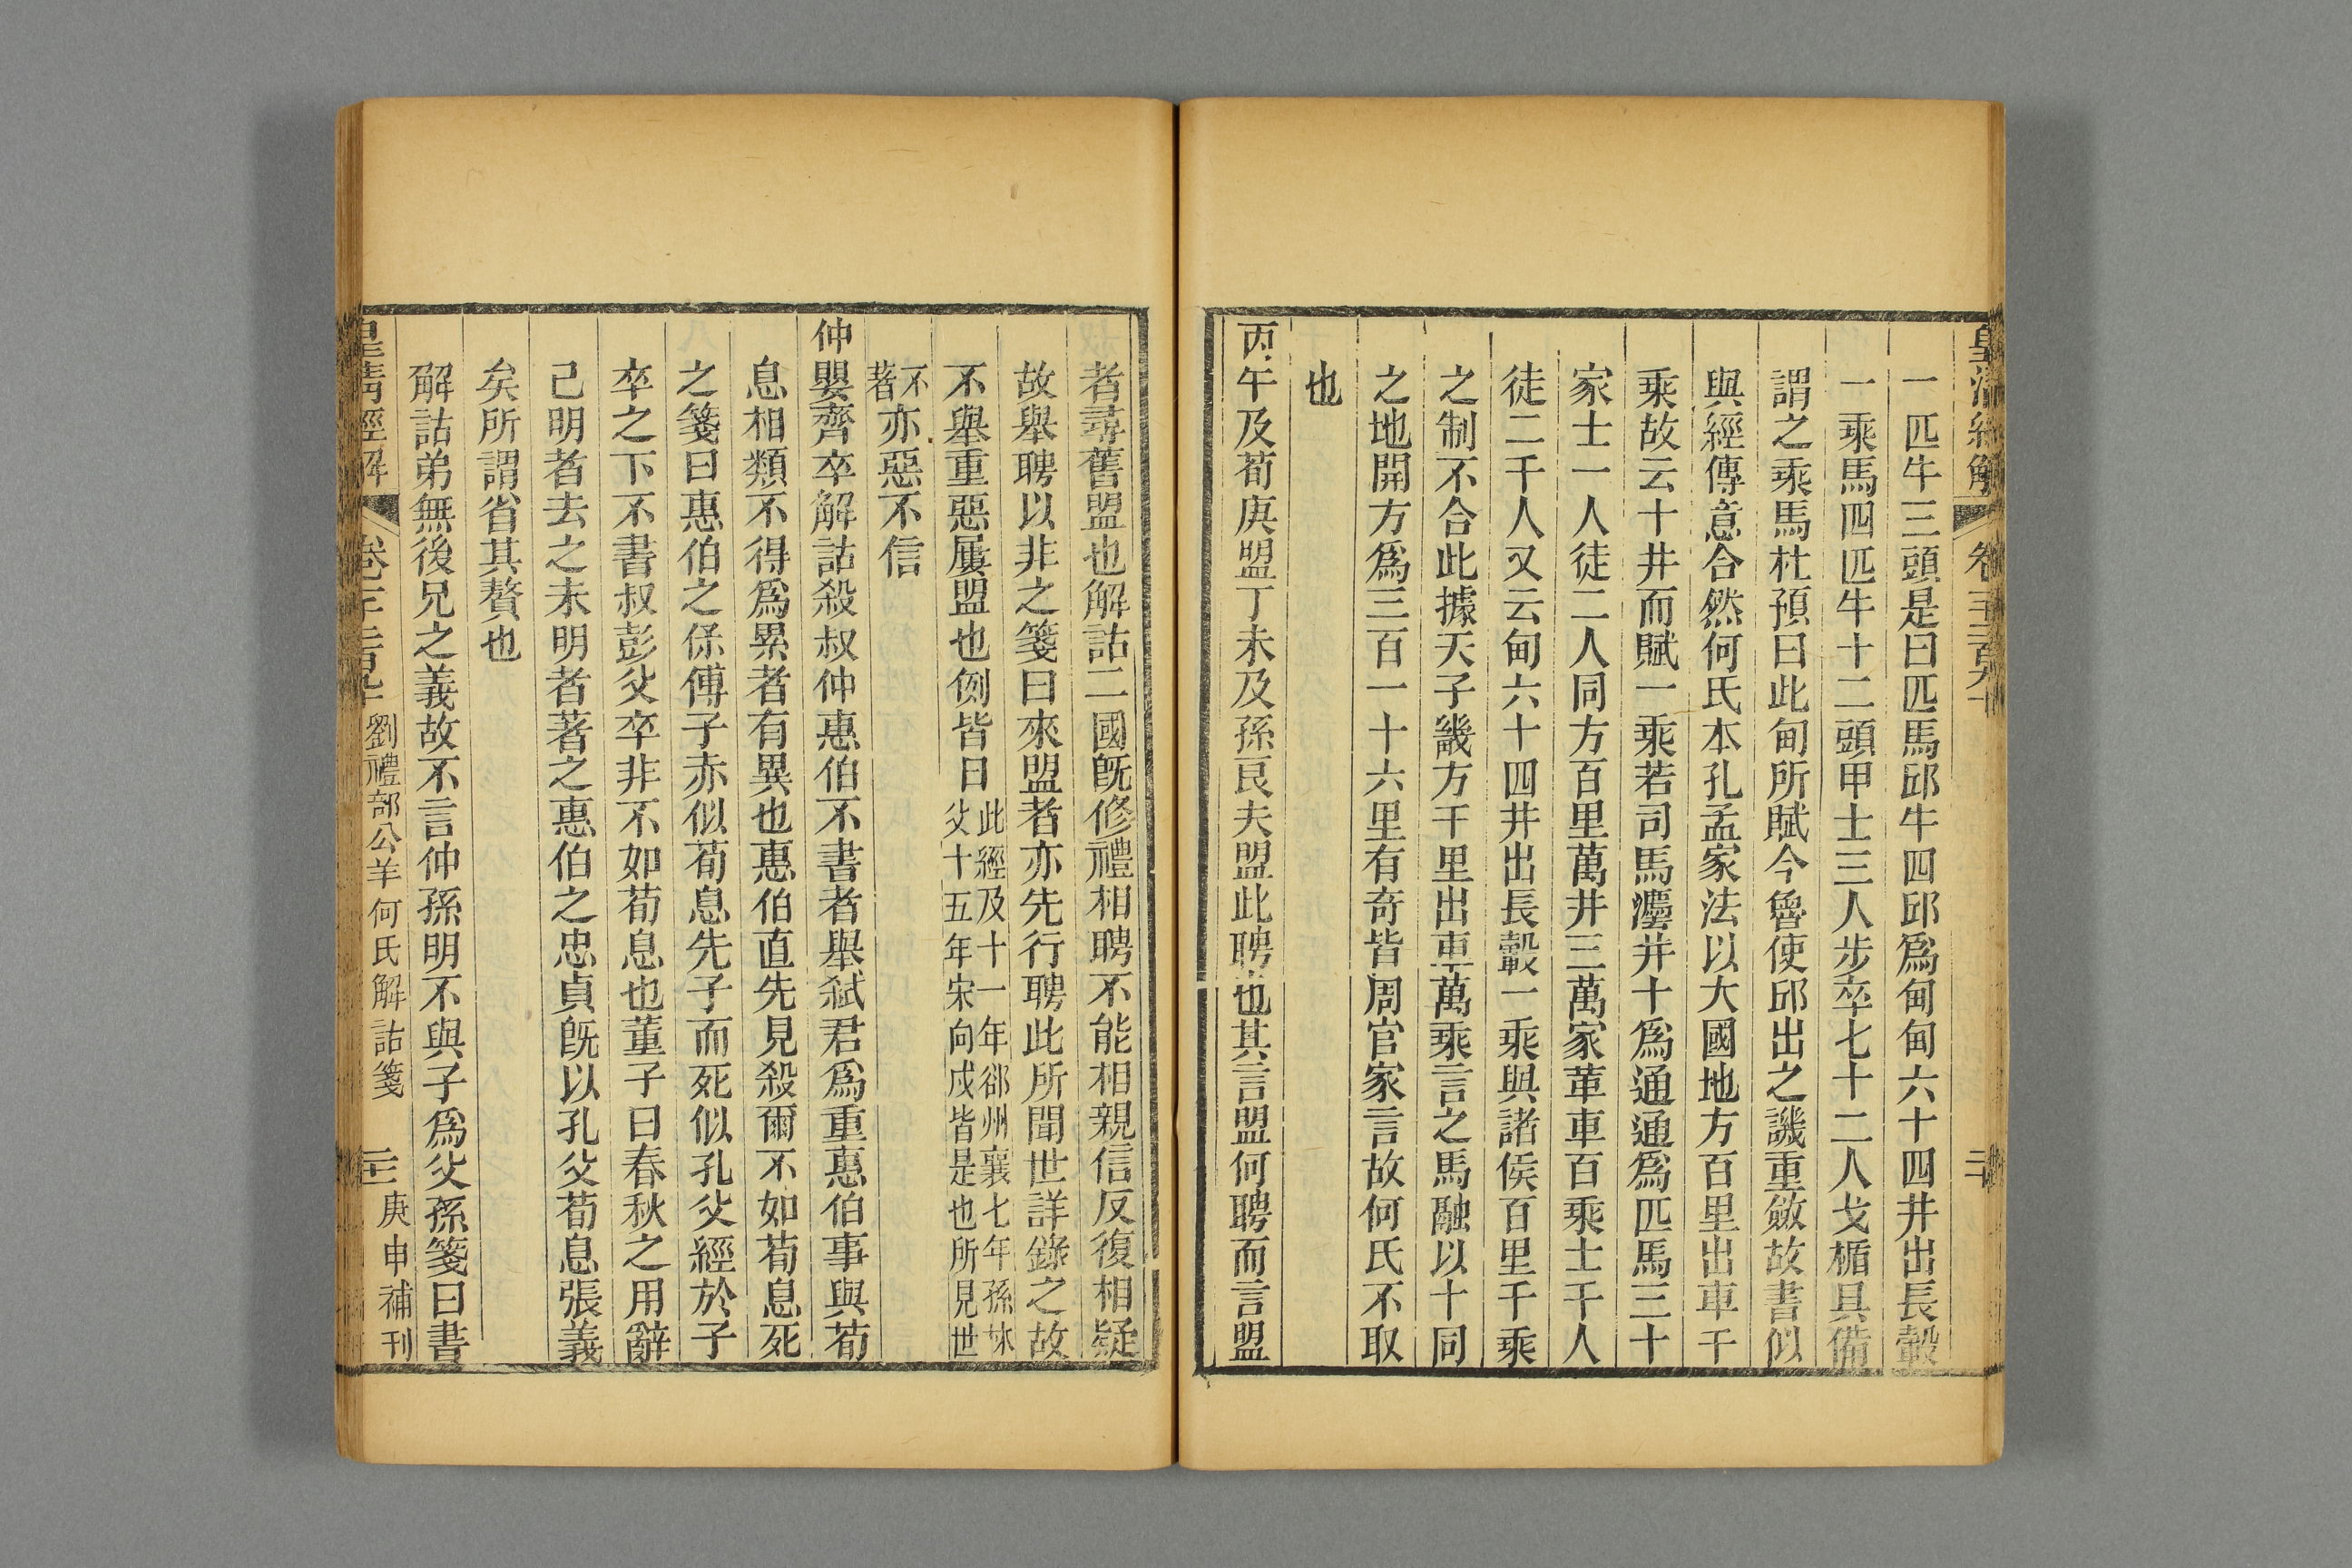 一匹牛三頭是曰匹馬邱牛四邱爲甸甸六十四井出長轂
一乘馬四匹牛十二頭甲士三人步卒七十二人戈楯具備
謂之乘馬杜預曰此甸所賦今魯使邱出之譏重斂故書似
與經傳意合然何氏本孔孟家法以大國地方百里出車千
乘故云十井而賦一乘若司馬灋井十爲通通爲匹馬三十
家士一人徒二人同方百里萬井三萬家革車百乘士千人
徒二千人又云甸六十四井出長轂一乘與諸侯百里千乘
之制不合此據天子畿方千里出車萬乘言之馬融以十同
之地開方爲三百一十六里有奇皆周官家言故何氏不取
也
丙午及荀庚盟丁未及孫良夫盟此聘也其言盟何聘而言盟
者尋舊盟也解詁二國旣修禮相聘不能相親信反復相疑
故舉聘以非之箋曰來盟者亦先行聘此所聞世詳錄之故
不舉重惡屢盟也例皆日此經及十一年郤州襄七年孫林父十五年宋向戌皆是也所見世
不著亦惡不信
仲嬰齊卒解詁殺叔仲惠伯不書者舉弑君爲重惠伯事與荀
息相類不得爲累者有異也惠伯直先見殺爾不如荀息死
之箋曰惠伯之傒傅子赤似荀息先子而死似孔父經於子
卒之下不書叔彭父卒非不如荀息也董子曰春秋之用辭
已明者去之未明者著之惠伯之忠貞旣以孔父荀息張義
矣所謂省其贅也
解詁弟無後兄之義故不言仲孫明不與子爲父孫箋曰書
皇清經解
劉禮部公羊何氏解詁箋
庚申補刊